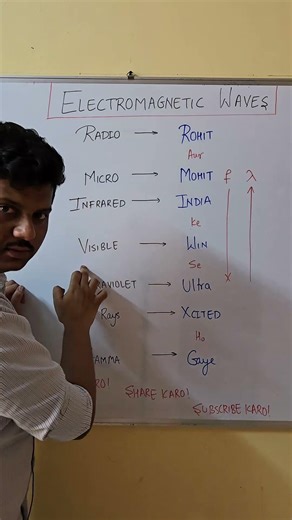 ELECTROMAGNETIC WAVES
RADIO → ROHIT
Aur
MICRO → MOHIT f λ
INFRARED → INDIA
Ke
VISIBLE → WIN
Se
RAVIOLET → Ultra
Rays → XCITED
Ho
AMMA → Gaye
SHARE KARO!
SUBSCRIBE KARO!